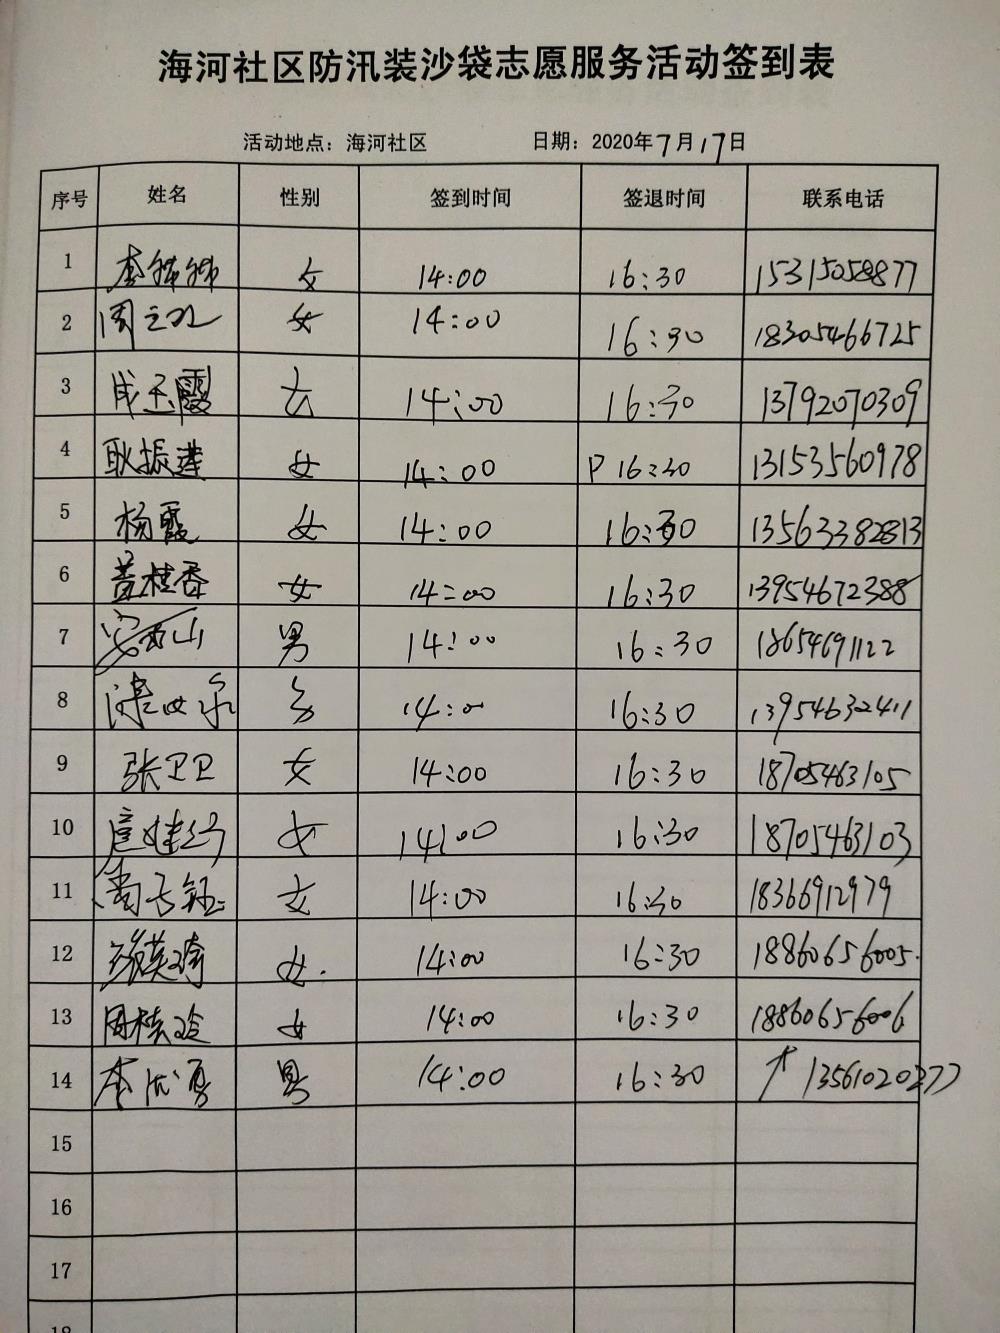 海河社区防汛装沙袋志愿服务活动签到表
活动地点：海河社区 日期：2020年7月17日
序号 姓名 性别 签到时间 签退时间 联系电话
1 女 14:00 16:30 15315058877
2 女 14:00 16:30 18305466725
3 成玉霞 女 14:00 16:30 13792070309
4 耿振莲 女 14:00 P 16:30 13153560978
5 杨霞 女 14:00 16:30 13563382813
6 黄桂香 女 14:00 16:30 13954672388
7 男 14:00 16:30 18654691122
8 男 14:00 16:30 13954632411
9 张卫卫 女 14:00 16:30 18705463105
10 女 14:00 16:30 18705463103
11 女 14:00 16:30 18366912979
12 女. 14:00 16:30 18860656005.
13 周桂玲 女 14:00 16:30 18860656006
14 男 14:00 16:30 13561020277
15
16
17
18